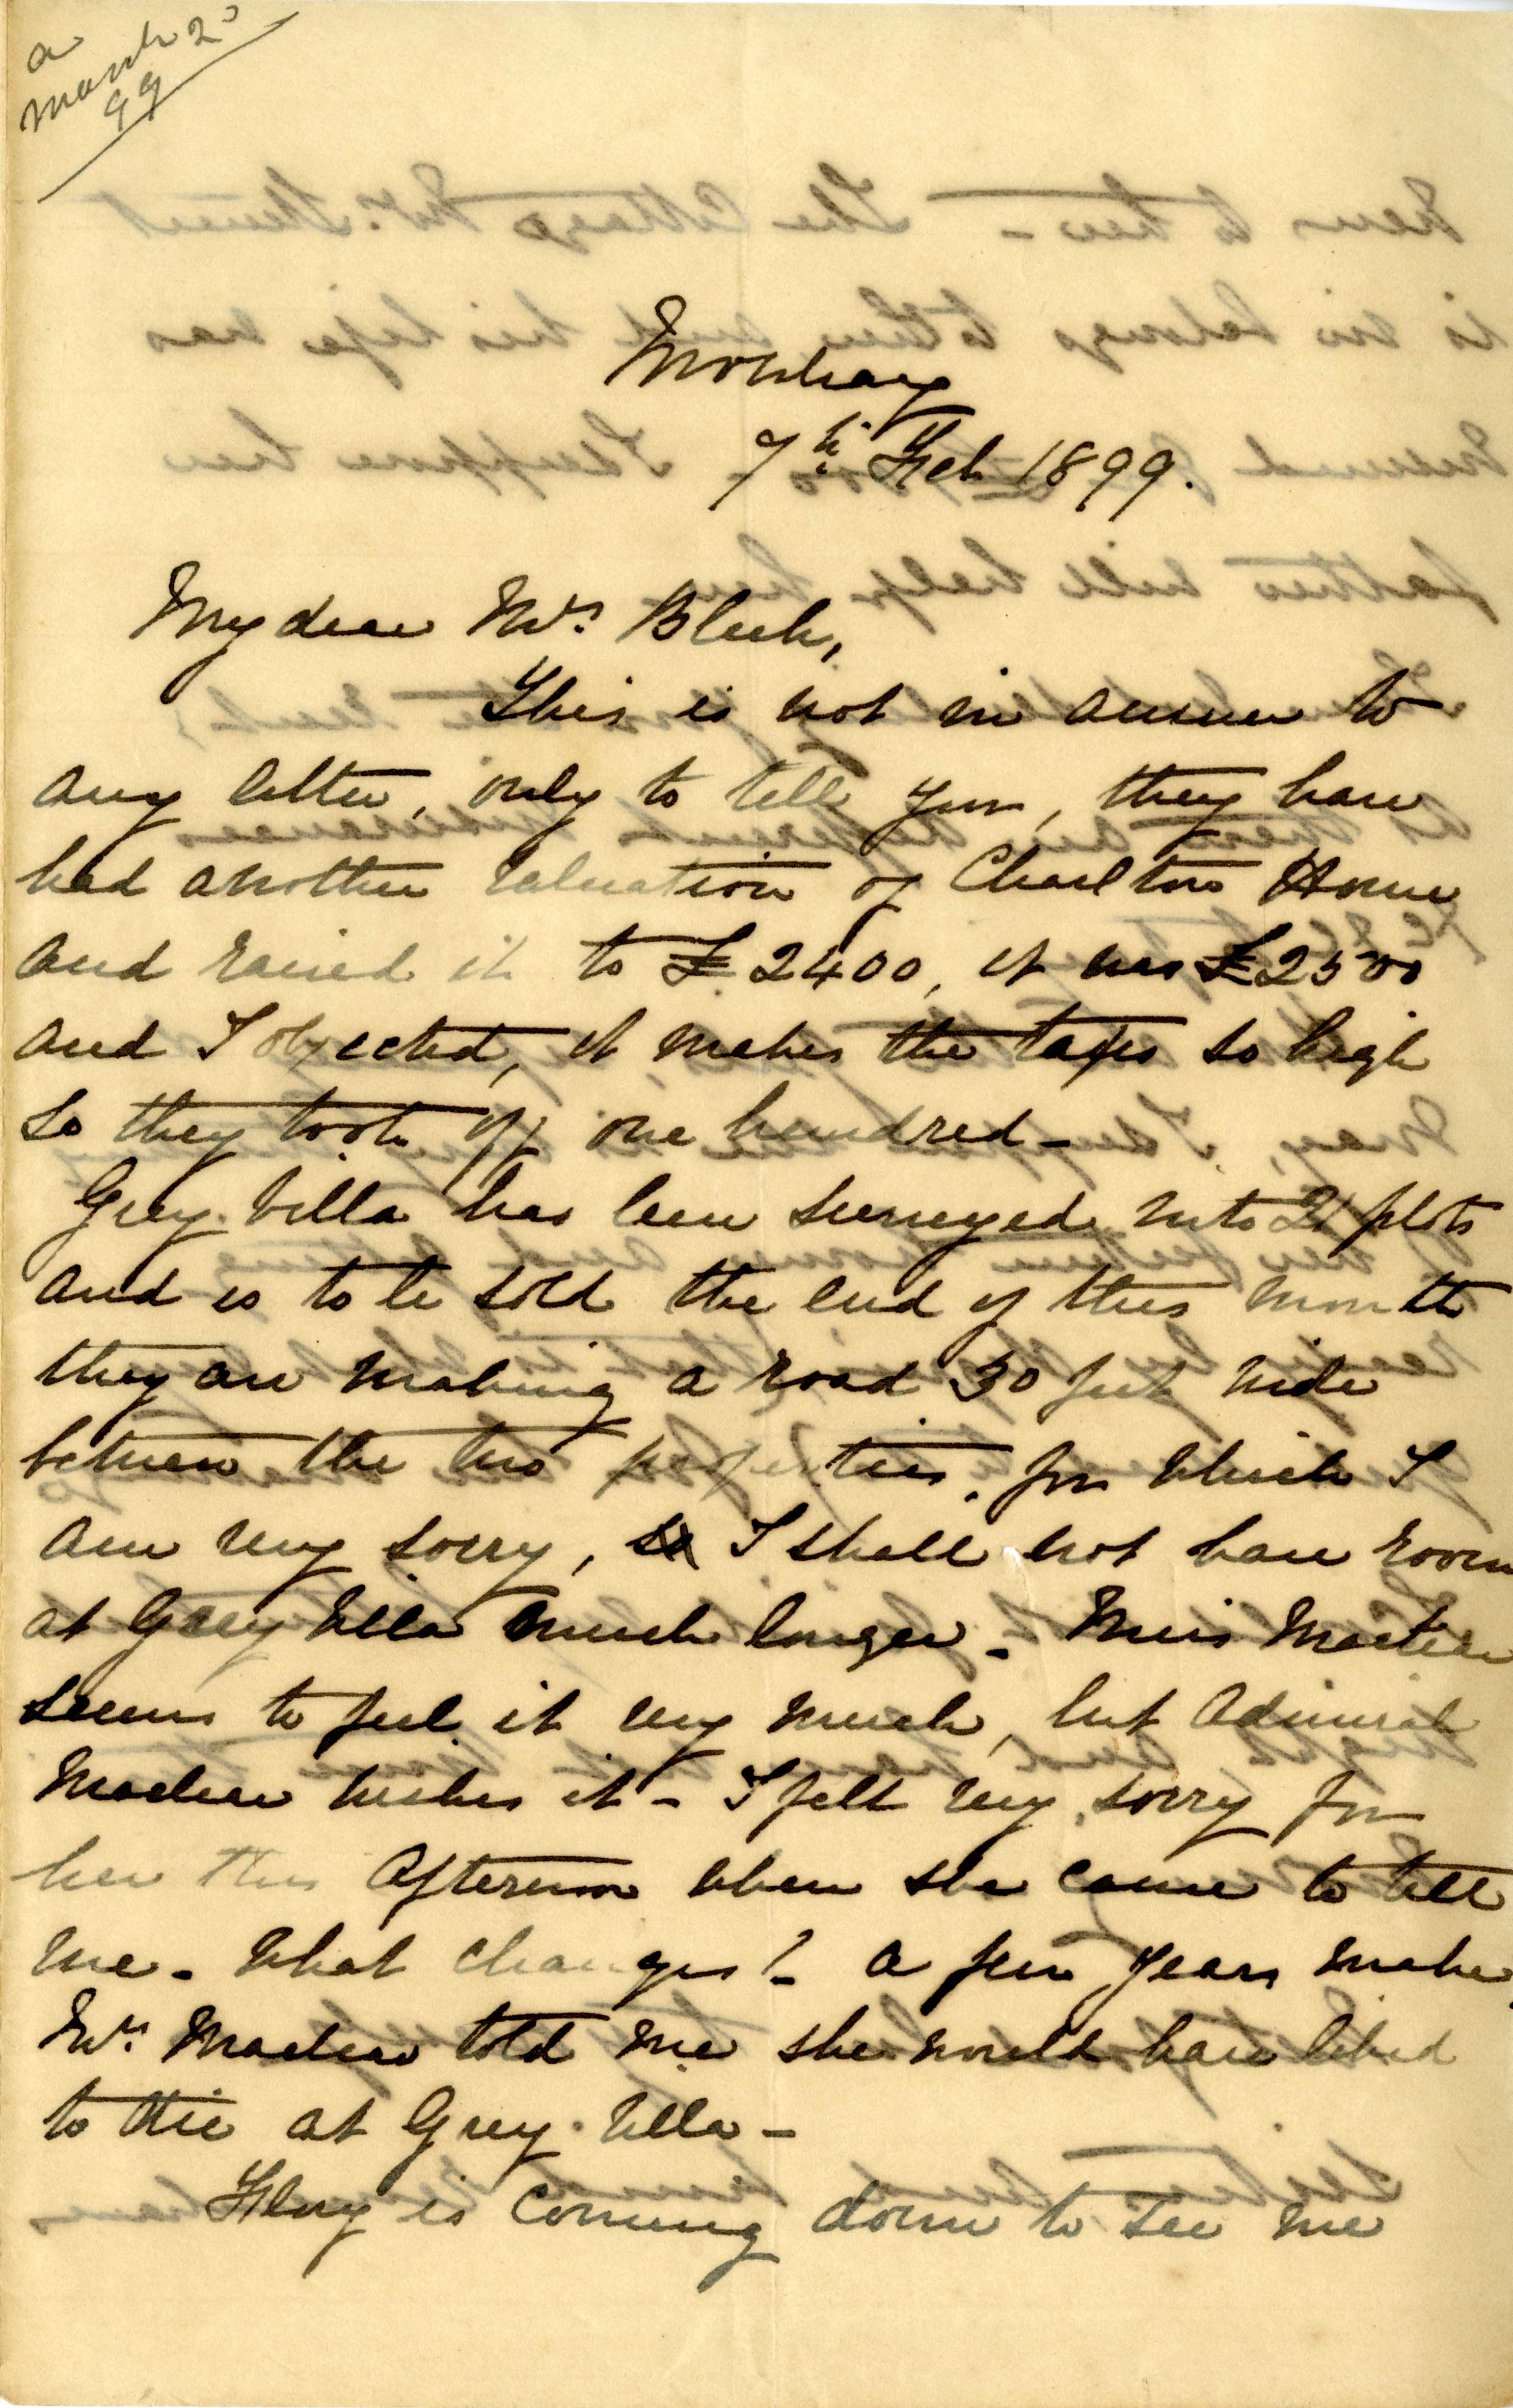 a
March 2
99
Mowbray
7th Feb 1899.
My dear Mrs Bleek,
This is not in answer to
any letter, only to tell you, they have
had another valuation of Charlton House
and raised it to £2400, it was £2500
and I objected, it makes the taxes so high
so they took off one hundred —
Grey Villa has been surveyed into 21 plots
and is to be sold the end of this month
they are making a road 30 feet wide
between the two properties, for which I
am very sorry, I shall not have room
at Grey Villa much longer — Miss Maclear
seems to feel it very much, but Admiral
Maclear wishes it — I felt very sorry for
her this afternoon when she came to tell
me — What changes! — a few years make,
Mrs Maclear told me she would have liked
to die at Grey Villa —
is coming down to see me